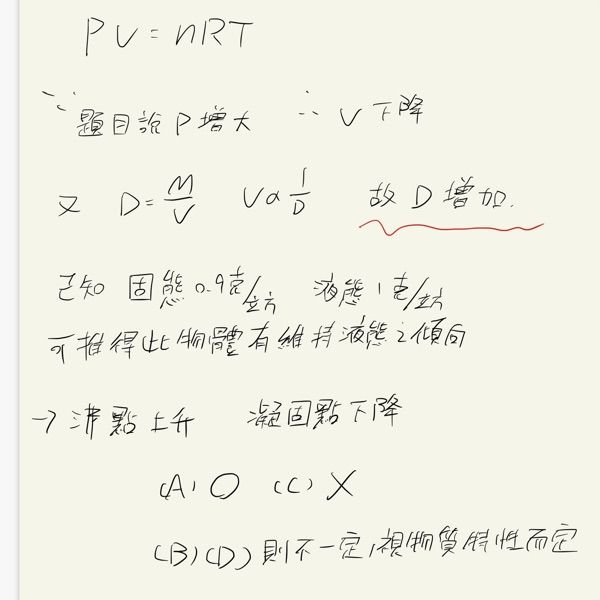 PV=nRT
∵題目說P增大 ∴V下降
又 D=M/V V∝1/D 故D增加.
已知 固態0.9克/立方 液態1克/立方
可推得此物體有維持液態之傾向
→沸點上升 凝固點下降
(A)O (C)X
(B)(D)則不一定,視物質特性而定